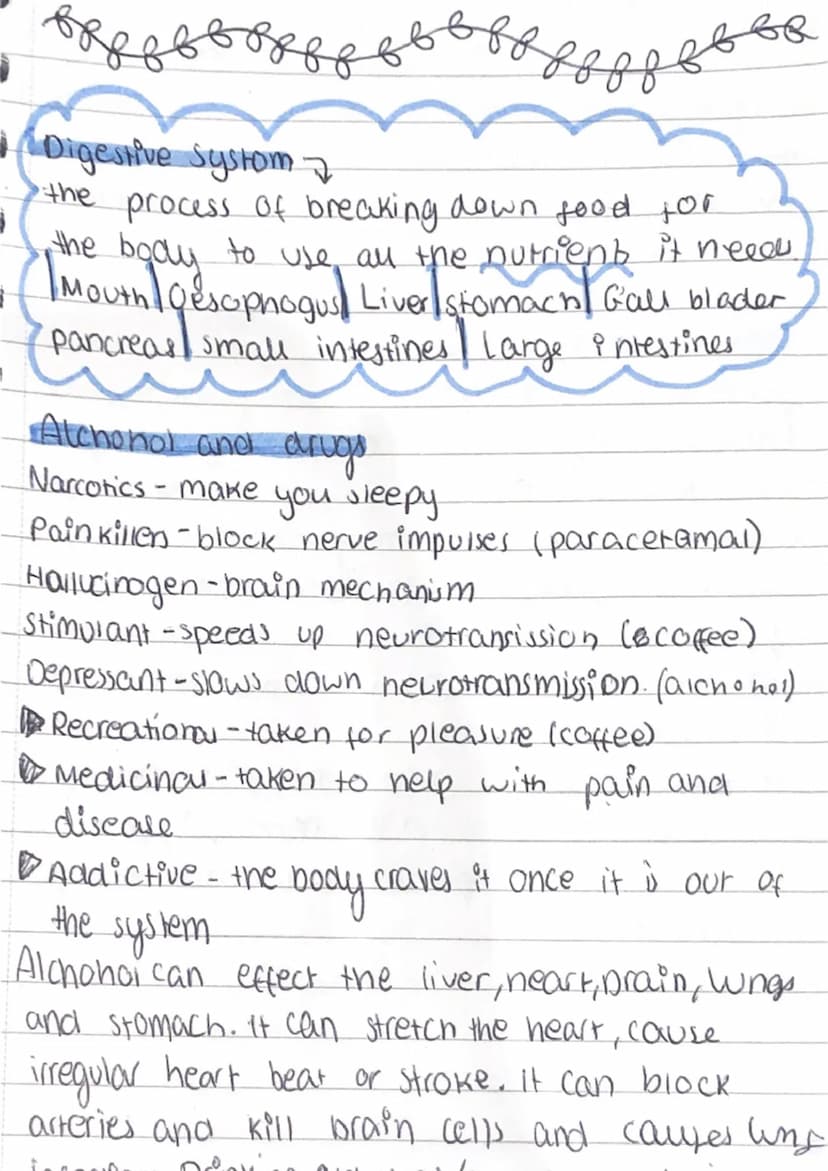 Digestive system
the process of breaking down food for
the body to use all the nutrients it needs
Mouth | Oesophogus | Liver | stomach | Gall blader
pancreas | small intestines | Large intestines
Alchohol and drugs
Narcotics - make you sleepy
Painkillers - block nerve impulses (paracetamal)
Hallucinogen - brain mechanism
Stimulant - speeds up neurotranission (coffee)
Depressant - slows down neurotransmission. (alchohol)
Recreational - taken for pleasure (coffee)
Medicinal - taken to help with pain and
disease
Addictive - the body craves it once it is out of
the system
Alchohol can effect the liver, heart, brain, lungs
and stomach. It can stretch the heart, cause
irregular heart beat or stroke. it can block
arteries and kill brain cells and causes lung